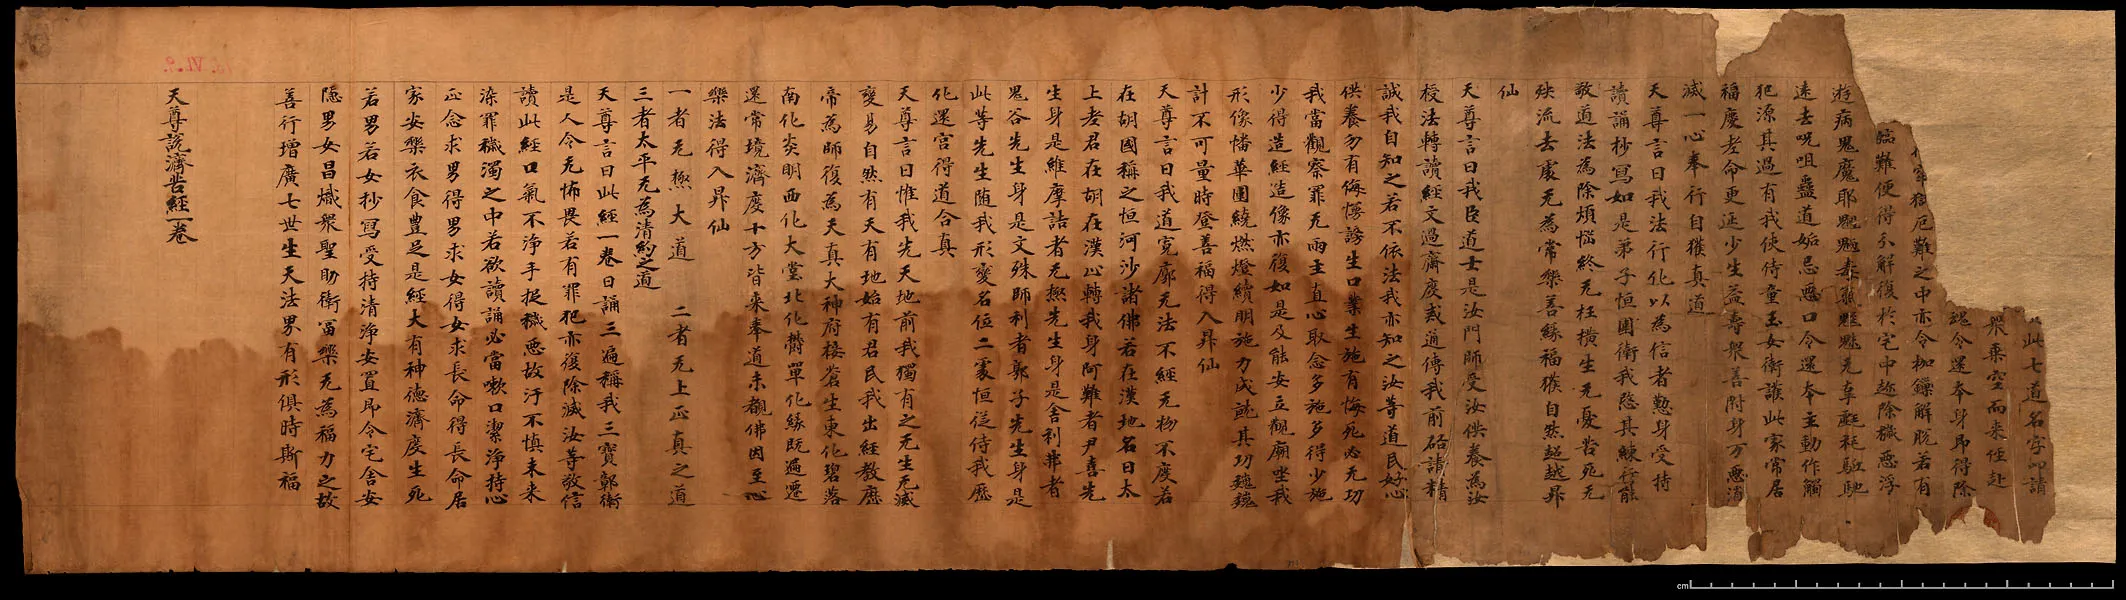 此七道名字即請
衆乘空而来任赴
還令還本身即得除
牢獄厄難之中亦令枷鏁解脱若有
臨難便得分解復於宅中逝除穢惡浮
遊病鬼魔耶
遠去呪咀蠱道妬忌惡口令還本主動作觸
犯源其過有我使侍童玉女衛護此家常居
福慶老命更延少生益壽衆善附身万惡消
滅一心奉行自獲真道
天尊言曰我法行化以為信者懃身受持
讀誦抄寫如是弟子恒圍衛我愍其練行能
敬道法為除煩惱終无枉橫生无憂苦死无
殃流去處无為常樂善緣福獲自然超越昇
仙
天尊言曰我臣道士是汝門師受汝供養為汝
授法轉讀經文過齋度戒通傳我前啟請精
誠我自知之若不依法我亦知之汝等道民好心
供養勿有侮慢謗生口業生施有悔死必无功
我當觀察罪无兩主直心取念多施多得少施
少得造經造像亦復如是及能安立觀廟坐我
形像幡華圍繞燃燈續明施力成就其功巍巍
計不可量時登善福得入昇仙
天尊言曰我道寬廓无法不經无物不度若
在胡國稱之恒河沙諸佛若在漢地名曰太
上老君在胡在漢心轉我身阿難者尹喜先
生身是維摩詰者无極先生身是舍利弗者
鬼谷先生身是文殊師利者郭子先生身是
此等先生随我形變名位二處恒從侍我歷
化還宫得道合真
天尊言曰惟我先天地前我獨有之无生无滅
變易自然有天有地始有君民我出經教歷
帝為師復為天真大神府接蒼生東化碧落
南化炎明西化大堂北化欝單化緣既遍還
還常境濟度十方皆来奉道未覩佛因至心
樂法得入昇仙
一者无極大道　二者无上正真之道
三者太平无為清約之道
天尊言曰此經一卷日誦三遍稱我三寶鄣衛
是人令无怖畏若有罪犯亦復除滅汝等敬信
讀此經口氣不淨手捉穢惡故汙不慎未来
染罪穢濁之中若欲讀誦必當嗽口潔淨持心
正念求男得男求女得女求長命得長命居
家安樂衣食豊足是經大有神德濟度生死
若男若女抄寫受持清淨安置即令宅舍安
隱男女昌熾衆聖助衛冨樂无為福力之故
善行增廣七世生天法界有形俱時斯福
天尊說濟苦經一卷